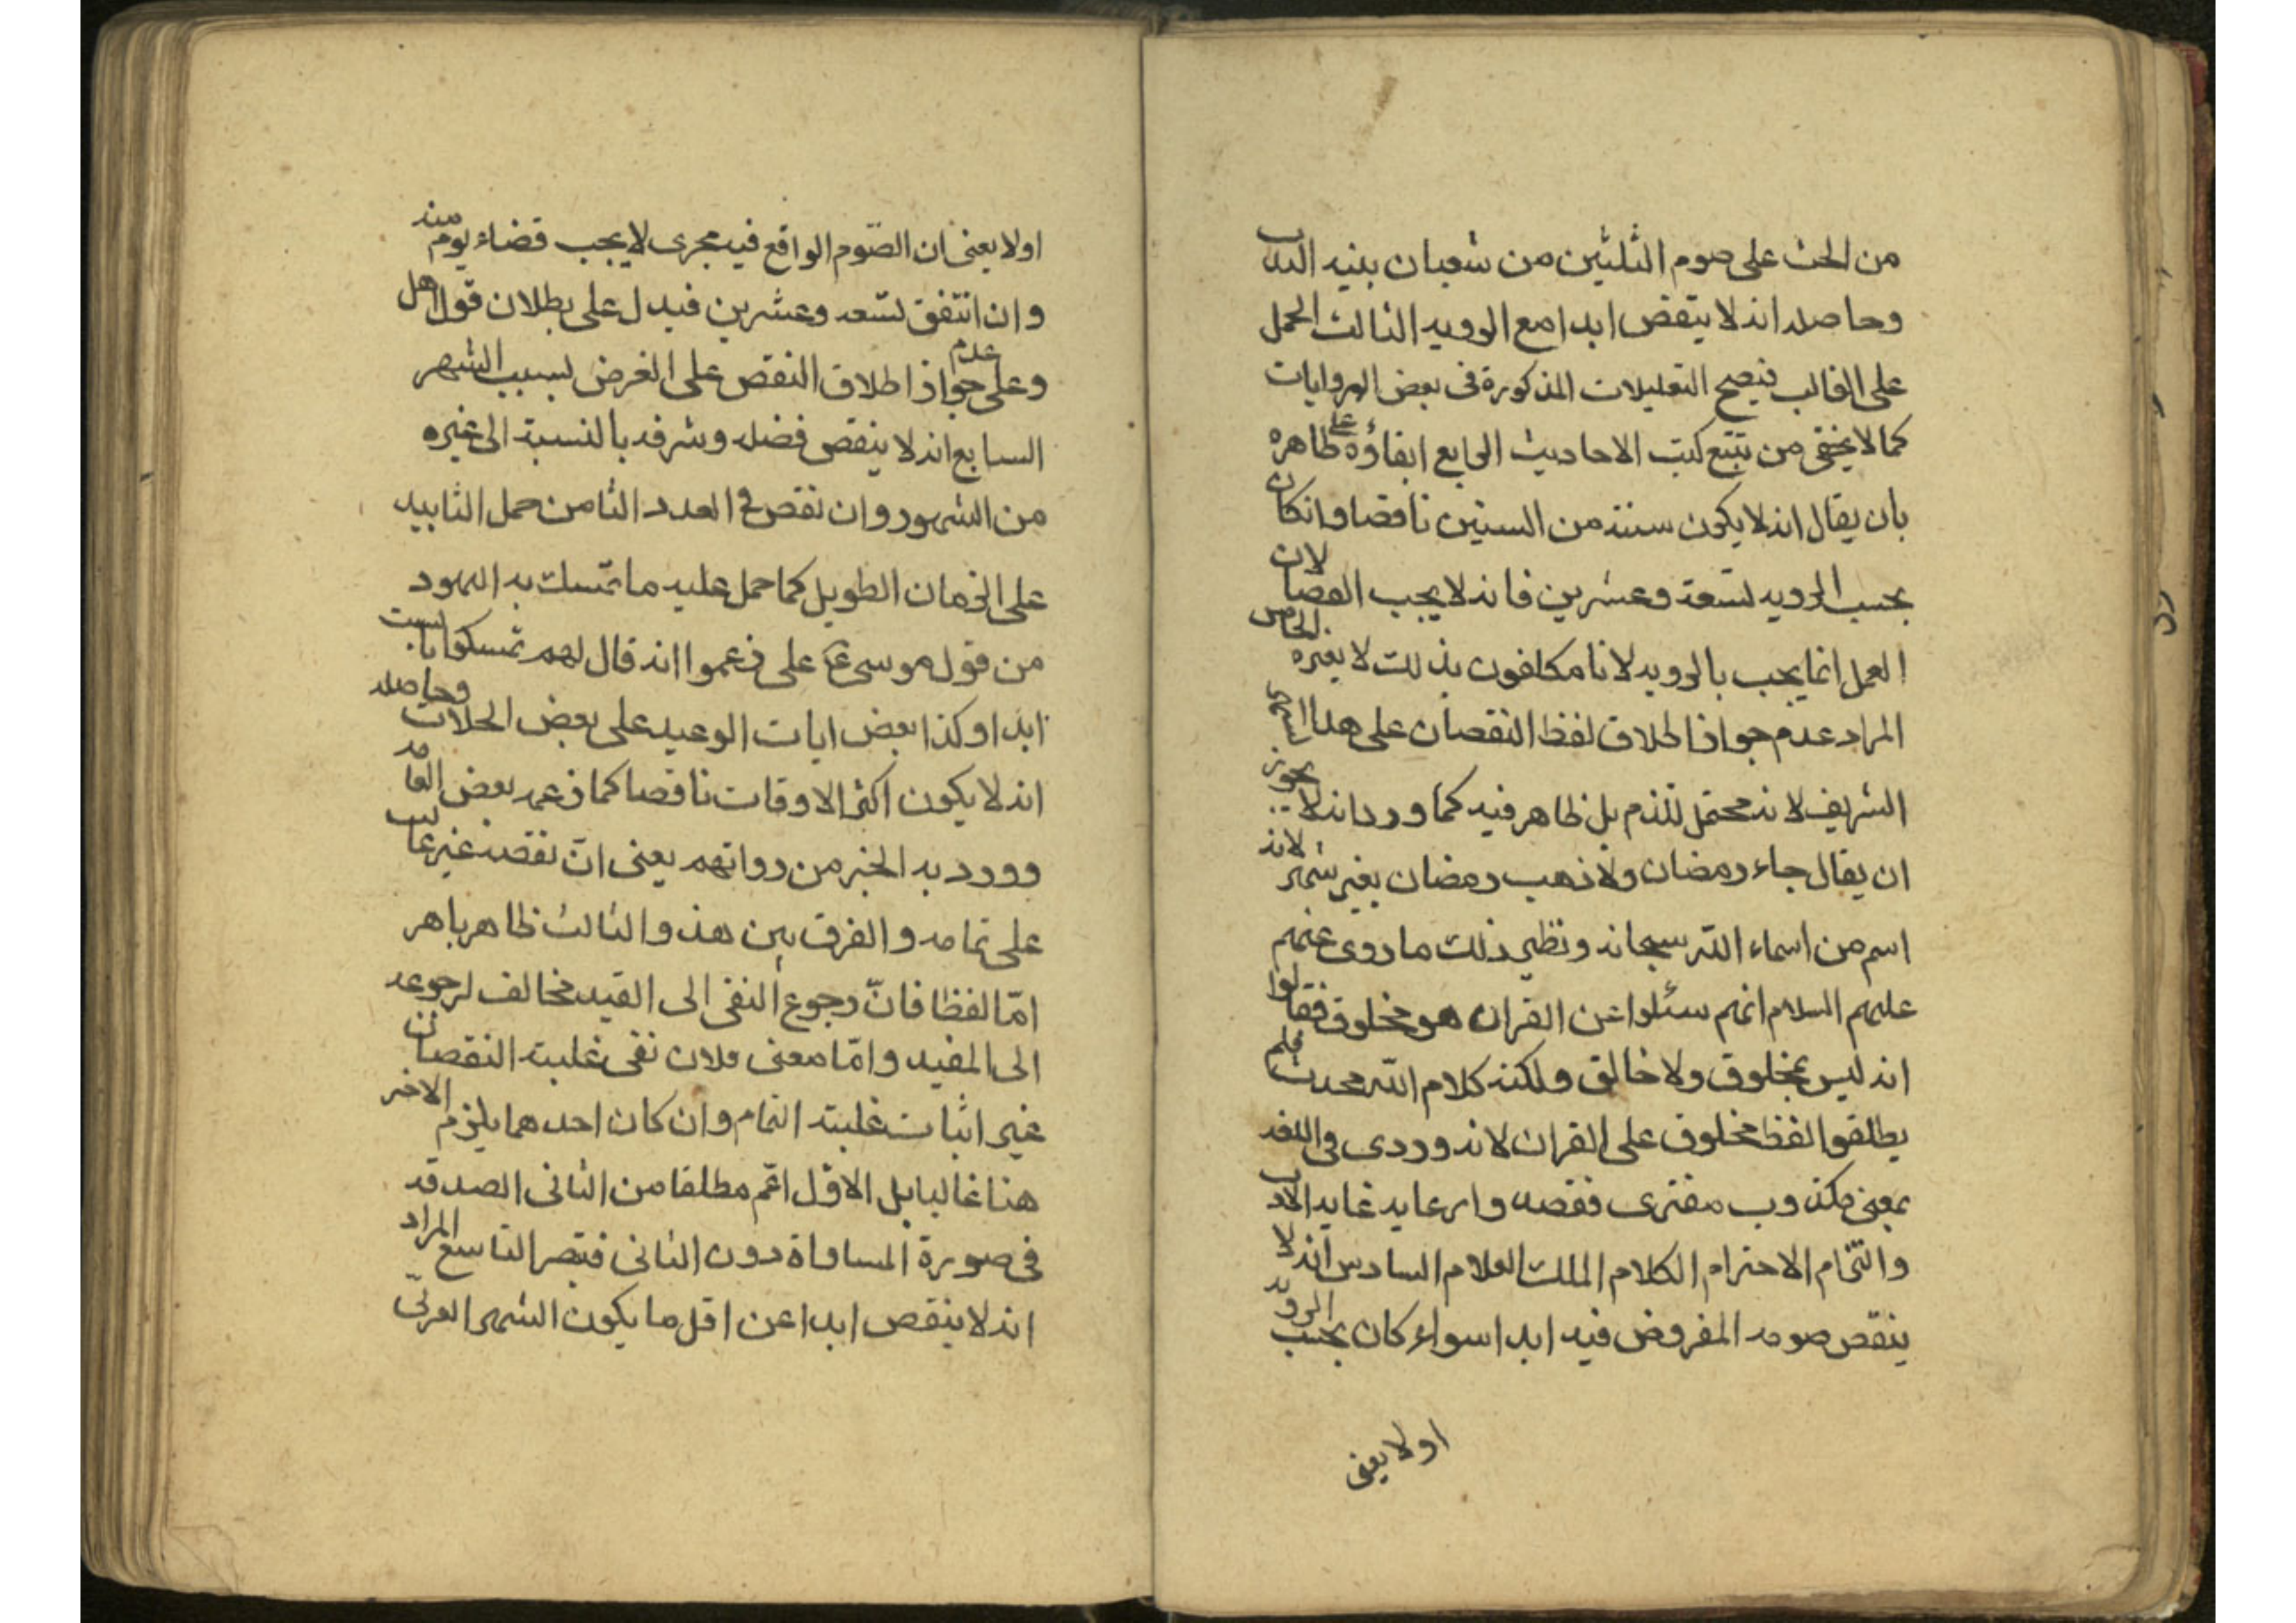 من الحث على صوم الثلثين من شعبان بنيه الندب
وحاصله انه لا ينقص ابدا مع الرويه الثالث الحمل
على الغالب فيصح التعليلات المذكورة فى بعض الروايات
كما لا يخفى من تتبع كتب الاحاديث الرابع ابقاؤه على ظاهره
بان يقال انه لا يكون سنة من السنين ناقصا وانكان
بحسب الرويه لتسعة وعشرين فانه لا يجب القضا لان
العمل انما يجب بالرويه لانا مكلفون بذلك لا بغيره الخامس
المراد عدم جواز اطلاق لفظ النقصان على هذا
الشريف لانه محتمل للذم بل ظاهر فيه كما ورد انه لا يجوز
ان يقال جاء رمضان ولا ذهب رمضان بغير شهر لانه
اسم من اسماء الله سبحانه ونظير ذلك ما روى عنهم
عليهم السلام انهم سئلوا عن القران هو مخلوق فقالوا
انه ليس بمخلوق ولا خالق ولكنه كلام الله محدث فلم
يطلقوا لفظ مخلوق على القران لانه وردى فى اللغه
بمعنى مكذوب مفترى فقصد وا رعايه غايه الادب
والتمام الاحترام الكلام الملك العلام السادس انه لا
ينقص صومه المفروض فيه ابدا سواء كان بحسب الرويه
اولا يعنى
اولا يعنى ان الصّوم الواقع فيه مجرى لا يجب قضاء يوم منه
وان اتفق لتسعه وعشرين فيدل على بطلان قول اهل
وعلى عدم جواز اطلاق النقص على الغرض لسبب الشهر
السابع انه لا ينقص فضله وشرفه بالنسبة الى غيره
من الشهور وان نقص فى العدد الثامن حمل التابيد
على الزمان الطويل كما حمل عليه ما تمسك به اليهود
من قول موسى ع على زعموا انه قال لهم تمسكوا بالسبت
ابدا وكذا بعض ايات الوعيد على بعض الحلات وحاصله
انه لا يكون اكثر الاوقات ناقصا كما زعمه بعض العامه
وورد به الخبر من رواتهم يعنى انّ نقصه غير غالب
على تمامه والفرق بين هذ والثالث ظاهر باهر
امّا لفظا فانّ رجوع النفى الى القيد مخالف لرجوعه
الى المقيد وامّا معنى فلان نفى غلبة النقصان
غير اثبات غلبة التمام وان كان احدهما يلزم الاخر
هنا غالبا بل الاوّل اعّم مطلقا من الثانى لصدقه
فى صورة المساواة دون الثانى فتبصر التاسع المراد
انه لا ينقص ابدا عن اقل ما يكون الشهر العربىّ